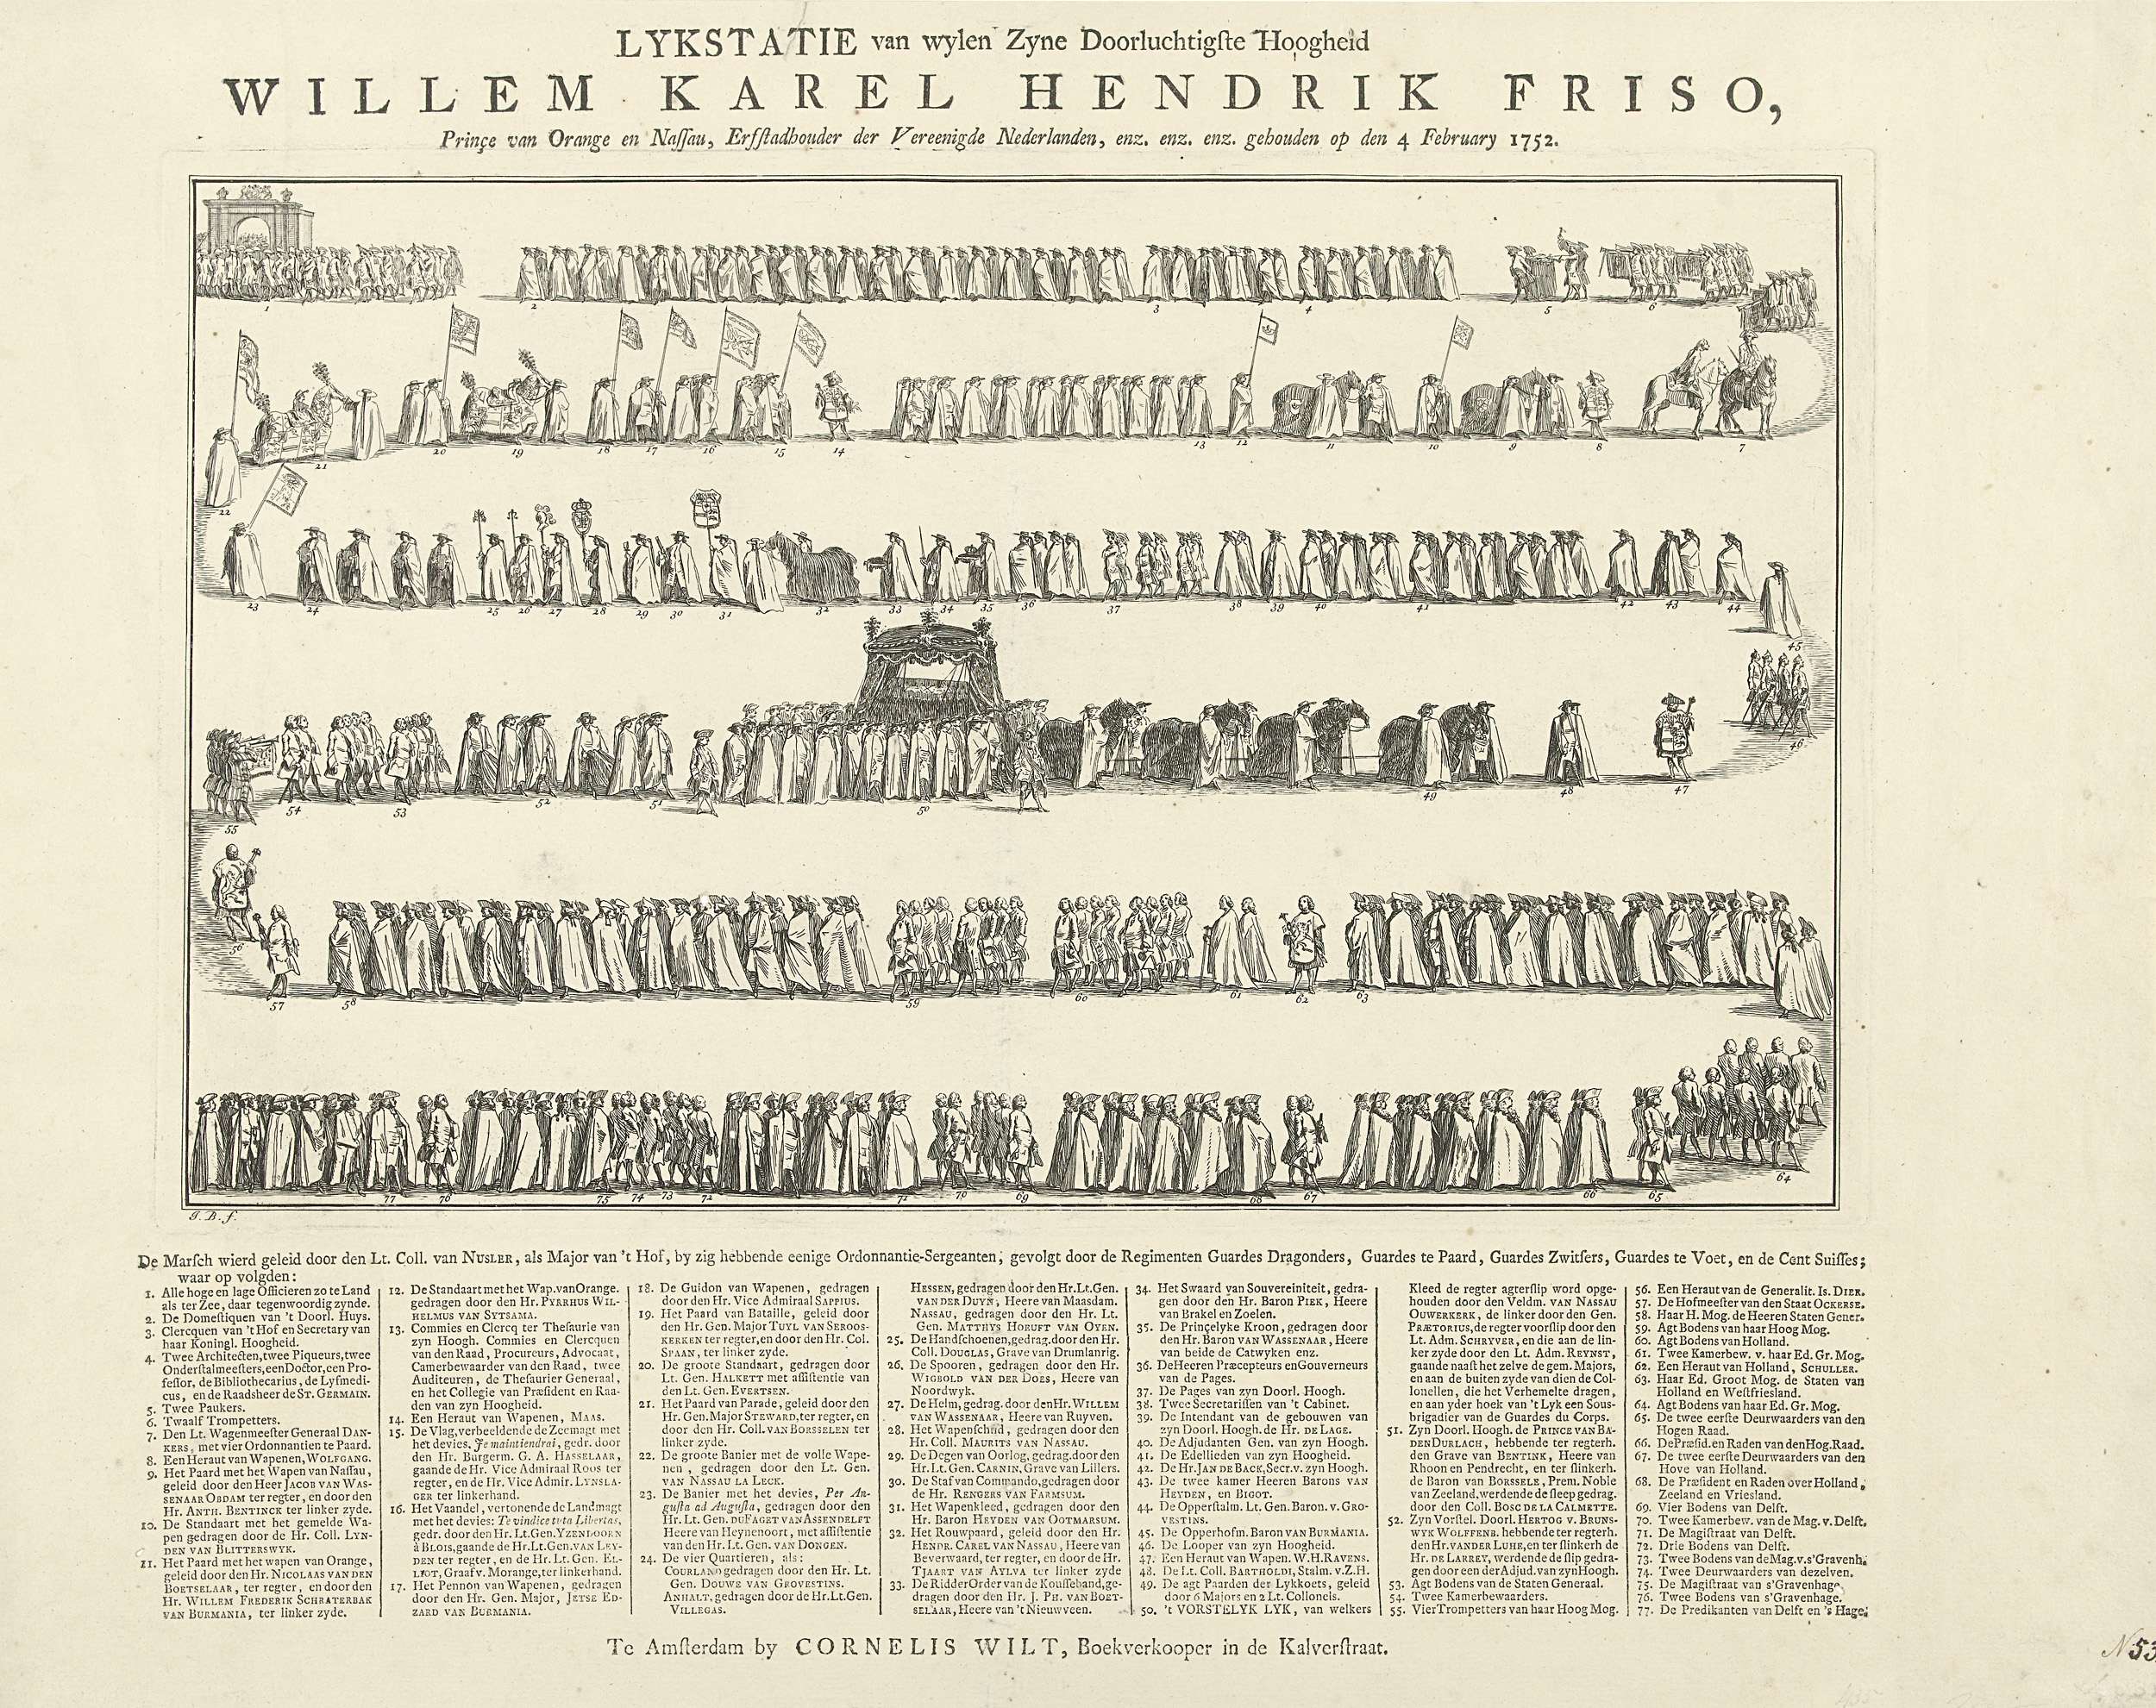 LYKSTATIE van wylen Zyne Doorluchtigſte Hoogheid
WILLEM KAREL HENDRIK FRISO,
Prinçe van Orange en Naſſau, Erfſtadhouder der Vereenigde Nederlanden, enz. enz. enz. gehouden op den 4 February 1752.
1 2 3 4 5 6
22 21 20 19 18 17 16 15 14 13 12 11 10 9 8 7
23 24 25 26 27 28 29 30 31 32 33 34 35 36 37 38 39 40 41 42 43 44 45
55 54 53 52 51 50 49 48 47 46
56 57 58 59 60 61 62 63
77 76 75 74 73 72 71 70 69 68 67 66 65 64
J. B. f.
De Marſch wierd geleid door den Lt. Coll. van NUSLER, als Major van 't Hof, by zig hebbende eenige Ordonnantie-Sergeanten; gevolgt door de Regimenten Guardes Dragonders, Guardes te Paard, Guardes Zwitſers, Guardes te Voet, en de Cent Suiſſes;
waar op volgden:
1. Alle hoge en lage Officieren zo te Land
als ter Zee, daar tegenwoordig zynde.
2. De Domeſtiquen van 't Doorl. Huys.
3. Clercquen van 't Hof en Secretary van
haar Koningl. Hoogheid.
4. Twee Architecten, twee Piqueurs, twee
Onderſtalmeeſters, een Doctor, een Pro-
feſſor, de Bibliothecarius, de Lyfmedi-
cus, en de Raadsheer de ST. GERMAIN.
5. Twee Paukers.
6. Twaalf Trompetters.
7. Den Lt. Wagenmeeſter Generaal DAN-
KERS, met vier Ordonnantien te Paard.
8. Een Heraut van Wapenen, WOLFGANG.
9. Het Paard met het Wapen van Naſſau,
geleid door den Heer JACOB VAN WAS-
SENAAR OBDAM ter regter, en door den
Hr. ANTH. BENTINCK ter linker zyde.
10. De Standaart met het gemelde Wa-
pen gedragen door de Hr. Coll. LYN-
DEN VAN BLITTERSWYK.
11. Het Paard met het wapen van Orange,
geleid door den Hr. NICOLAAS VAN DEN
BOETSELAAR, ter regter, en door den
Hr. WILLEM FREDERIK SCHRATERBAK
VAN BURMANIA, ter linker zyde.
12. De Standaart met het Wap. van Orange.
gedragen door den Hr. PYRRHUS WIL-
HELMUS VAN SYTSAMA.
13. Commies en Clercq ter Theſaurie van
zyn Hoogh. Commies en Clercquen
van den Raad, Procureurs, Advocaat,
Camerbewaarder van den Raad, twee
Auditeuren, de Theſaurier Generaal,
en het Collegie van Præſident en Raa-
den van zyn Hoogheid.
14. Een Heraut van Wapenen, MAAS.
15. De Vlag, verbeeldende de Zeemagt met
het devies, Je maintiendrai, gedr. door
den Hr. Burgerm. G. A. HASSELAAR,
gaande de Hr. Vice Admiraal ROOS ter
regter, en de Hr. Vice Admir. LYNSLA-
GER ter linkerhand.
16. Het Vaandel, vertonende de Landmagt
met het devies: Te vindice tuta Libertas,
gedr. door den Hr. Lt. Gen. YZENDOORN
à BLOIS, gaande de Hr. Lt. Gen. VAN LEY-
DEN ter regter, en de Hr. Lt. Gen. EL-
LIOT, Graaf v. Morange, ter linkerhand.
17. Het Pennon van Wapenen, gedragen
door den Hr. Gen. Major, JETSE ED-
ZARD VAN BURMANIA.
18. De Guidon van Wapenen, gedragen
door den Hr. Vice Admiraal SAPPIUS.
19. Het Paard van Bataille, geleid door
den Hr. Gen. Major TUYL VAN SEROOS-
KERKEN ter regter, en door den Hr. Col.
SPAAN, ter linker zyde.
20. De groote Standaart, gedragen door
Lt. Gen. HALKETT met aſſiſtentie van
den Lt. Gen. EVERTSEN.
21. Het Paard van Parade, geleid door den
Hr. Gen. Major STEWARD, ter regter, en
door den Hr. Coll. VAN BORSSELEN ter
linker zyde.
22. De groote Banier met de volle Wape-
nen, gedragen door den Lt. Gen.
VAN NASSAU LA LECK.
23. De Banier met het devies, Per An-
guſta ad Auguſta, gedragen door den
Hr. Lt. Gen. DU FAGET VAN ASSENDELFT
Heere van Heynenoort, met aſſiſtentie
van den Hr. Lt. Gen. VAN DONGEN.
24. De vier Quartieren, als:
COURLAND gedragen door den Hr. Lt.
Gen. DOUWE VAN GROVESTINS.
ANHALT, gedragen door de Hr. Lt. Gen.
VILLEGAS.
HESSEN, gedragen door den Hr. Lt. Gen.
VAN DER DUYN, Heere van Maasdam.
NASSAU, gedragen door den Hr. Lt.
Gen. MATTHYS HOEUFT VAN OYEN.
25. De Handſchoenen, gedrag. door den Hr.
Coll. DOUGLAS, Grave van Drumlanrig.
26. De Spooren, gedragen door den Hr.
WIGBOLD VAN DER DOES, Heere van
Noordwyk.
27. De Helm, gedrag. door den Hr. WILLEM
VAN WASSENAAR, Heere van Ruyven.
28. Het Wapenſchild, gedragen door den
Hr. Coll. MAURITS VAN NASSAU.
29. De Degen van Oorlog, gedrag. door den
Hr. Lt. Gen. CARNIN, Grave van Lillers.
30. De Staf van Commando, gedragen door
de Hr. RENGERS VAN FARMSUM.
31. Het Wapenkleed, gedragen door den
Hr. Baron HEYDEN VAN OOTMARSUM.
32. Het Rouwpaard, geleid door den Hr.
HENDR. CAREL VAN NASSAU, Heere van
Beverwaard, ter regter, en door de Hr.
TJAART VAN AYLVA ter linker zyde
33. De Ridder Order van de Kouſſeband, ge-
dragen door den Hr. J. PH. VAN BOET-
SELAAR, Heere van 't Nieuwveen.
34. Het Swaard van Souvereiniteit, gedra-
gen door den Hr. Baron PIEK, Heere
van Brakel en Zoelen.
35. De Prinçelyke Kroon, gedragen door
den Hr. Baron VAN WASSENAAR, Heere
van beide de Catwyken enz.
36. De Heeren Præcepteurs en Gouverneurs
van de Pages.
37. De Pages van zyn Doorl. Hoogh.
38. Twee Secretariſſen van 't Cabinet.
39. De Intendant van de gebouwen van
zyn Doorl. Hoogh. de Hr. DE LAGE.
40. De Adjudanten Gen. van zyn Hoogh.
41. De Edellieden van zyn Hoogheid.
42. De Hr. JAN DE BACK, Secr. v. zyn Hoogh.
43. De twee kamer Heeren Barons VAN
HEYDEN, en BIGOT.
44. De Opperſtalm. Lt. Gen. Baron. v. GRO-
VESTINS.
45. De Opperhofm. Baron VAN BURMANIA.
46. De Looper van zyn Hoogheid.
47. Een Heraut van Wapen. W. H. RAVENS.
48. De Lt. Coll. BARTHOLDI, Stalm. v. Z. H.
49. De agt Paarden der Lykkoets, geleid
door 6 Majors en 2 Lt. Collonels.
50. 't VORSTELYK LYK, van welkers
Kleed de regter agterſlip word opge-
houden door den Veldm. VAN NASSAU
OUWERKERK, de linker door den Gen.
PRÆTORIUS, de regter voorſlip door den
Lt. Adm. SCHRYVER, en die aan de lin-
ker zyde door den Lt. Adm. REYNST,
gaande naaſt het zelve de gem. Majors,
en aan de buiten zyde van dien de Col-
lonellen, die het Verhemelte dragen,
en aan yder hoek van 't Lyk een Sous-
brigadier van de Guardes du Corps.
51. Zyn Doorl. Hoogh. de PRINCE VAN BA-
DEN DURLACH, hebbende ter regterh.
den Grave van BENTINK, Heere van
Rhoon en Pendrecht, en ter ſlinkerh.
de Baron van BORSSELE, Prem. Noble
van Zeeland, werdende de ſleep gedrag.
door den Coll. BOSC DE LA CALMETTE.
52. Zyn Vorſtel. Doorl. HERTOG v. BRUNS-
WYK WOLFFENB. hebbende ter regterh.
den Hr. VANDER LUHR, en ter ſlinkerh de
Hr. DE LARREY, werdende de ſlip gedra-
gen door een der Adjud. van zyn Hoogh.
53. Agt Bodens van de Staten Generaal.
54. Twee Kamerbewaarders.
55. Vier Trompetters van haar Hoog Mog.
56. Een Heraut van de Generalit. Is. DIER.
57. De Hofmeeſter van den Staat OCKERSE.
58. Haar H. Mog. de Heeren Staten Gener.
59. Agt Bodens van haar Hoog Mog.
60. Agt Bodens van Holland.
61. Twee Kamerbew. v. haar Ed. Gr. Mog.
62. Een Heraut van Holland, SCHULLER.
63. Haar Ed. Groot Mog. de Staten van
Holland en Weſtfriesland.
64. Agt Bodens van haar Ed. Gr. Mog.
65. De twee eerſte Deurwaarders van den
Hogen Raad.
66. De Præſid. en Raden van den Hog. Raad.
67. De twee eerſte Deurwaarders van den
Hove van Holland.
68. De Præſident en Raden over Holland,
Zeeland en Vriesland.
69. Vier Bodens van Delft.
70. Twee Kamerbew. van de Mag. v. Delft.
71. De Magiſtraat van Delft.
72. Drie Bodens van Delft.
73. Twee Bodens van de Mag. v. s'Gravenh.
74. Twee Deurwaarders van dezelven.
75. De Magiſtraat van s'Gravenhage.
76. Twee Bodens van s'Gravenhage.
77. De Predikanten van Delft en 's Hage.
Te Amſterdam by CORNELIS WILT, Boekverkooper in de Kalverſtraat.
N 53